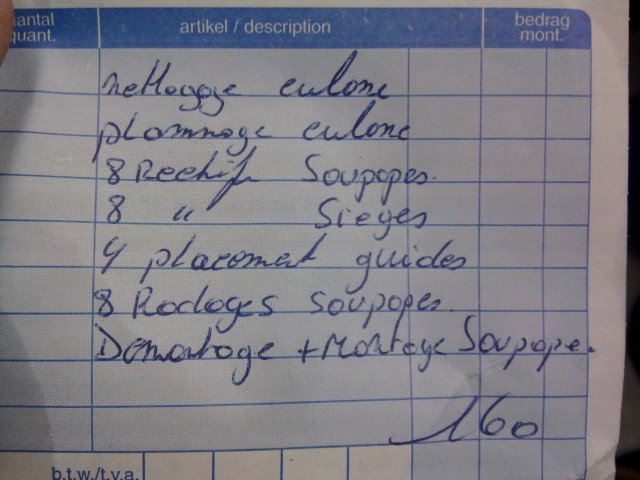 antal artikel / description bedrag
quant. mont.
nettoyage culone
plannage culone
8 Rectif Soupopes.
8 " Sieges
4 placement guides
8 Rodages Soupopes.
Démontage + Montage Soupope.
160
b.t.w./t.v.a.